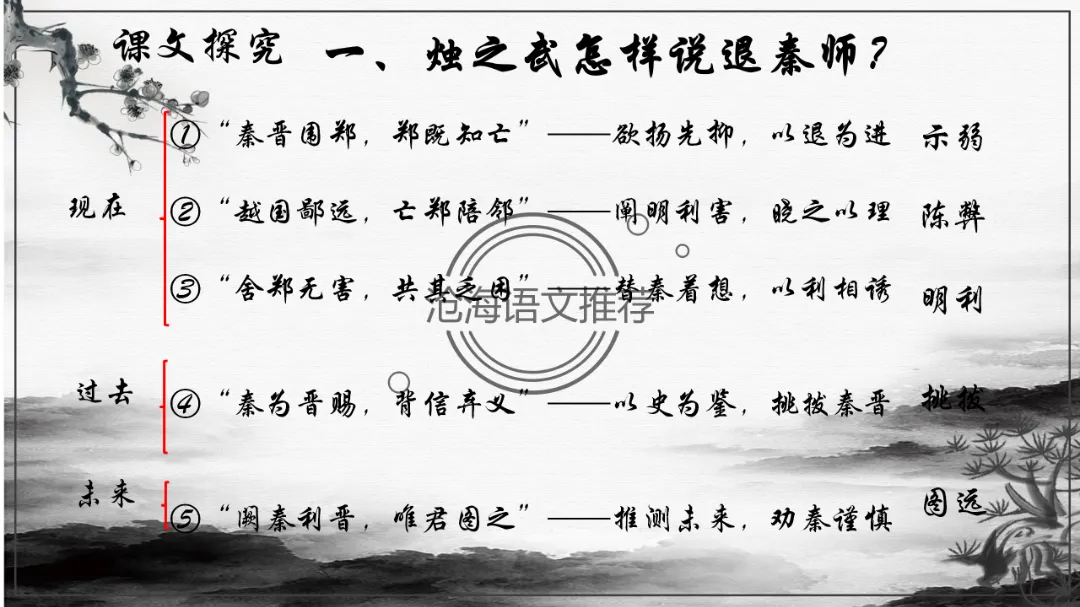 课文探究 一、烛之武怎样说退秦师？
①“秦晋围郑，郑既知亡”——欲扬先抑，以退为进 示弱
现在 ②“越国鄙远，亡郑陪邻”——阐明利害，晓之以理 陈弊
③“舍郑无害，共其乏困”——替秦着想，以利相诱 明利
沧海语文推荐
过去 ④“秦为晋赐，背信弃义”——以史为鉴，挑拨秦晋 挑拨
未来 ⑤“阙秦利晋，唯君图之”——推测未来，劝秦谨慎 图远